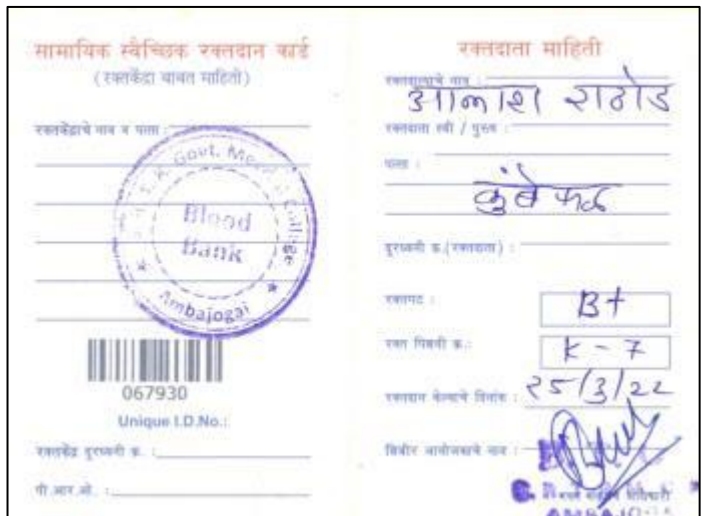 सामायिक स्वैच्छिक रक्तदान कार्ड
(रक्तकेंद्रा बाबत माहिती)
रक्तकेंद्राचे नाव व पत्ता :
Govt. College
Blood
Bank
Ambajogai
067930
Unique I.D.No.:
रक्तकेंद्र दुरध्वनी क्र. :
पी.आर.ओ. :
रक्तदाता माहिती
रक्तदात्याचे नाव :
राठोड
रक्तदाता स्त्री / पुरुष :
पत्ता :
कुंबेफळ
दुरध्वनी क्र.(रक्तदाता) :
रक्तगट :
B+
रक्त पिशवी क्र.:
K - 7
रक्तदान केल्याचे दिनांक :
२५/3/22
शिबीर आयोजकाचे नाव :